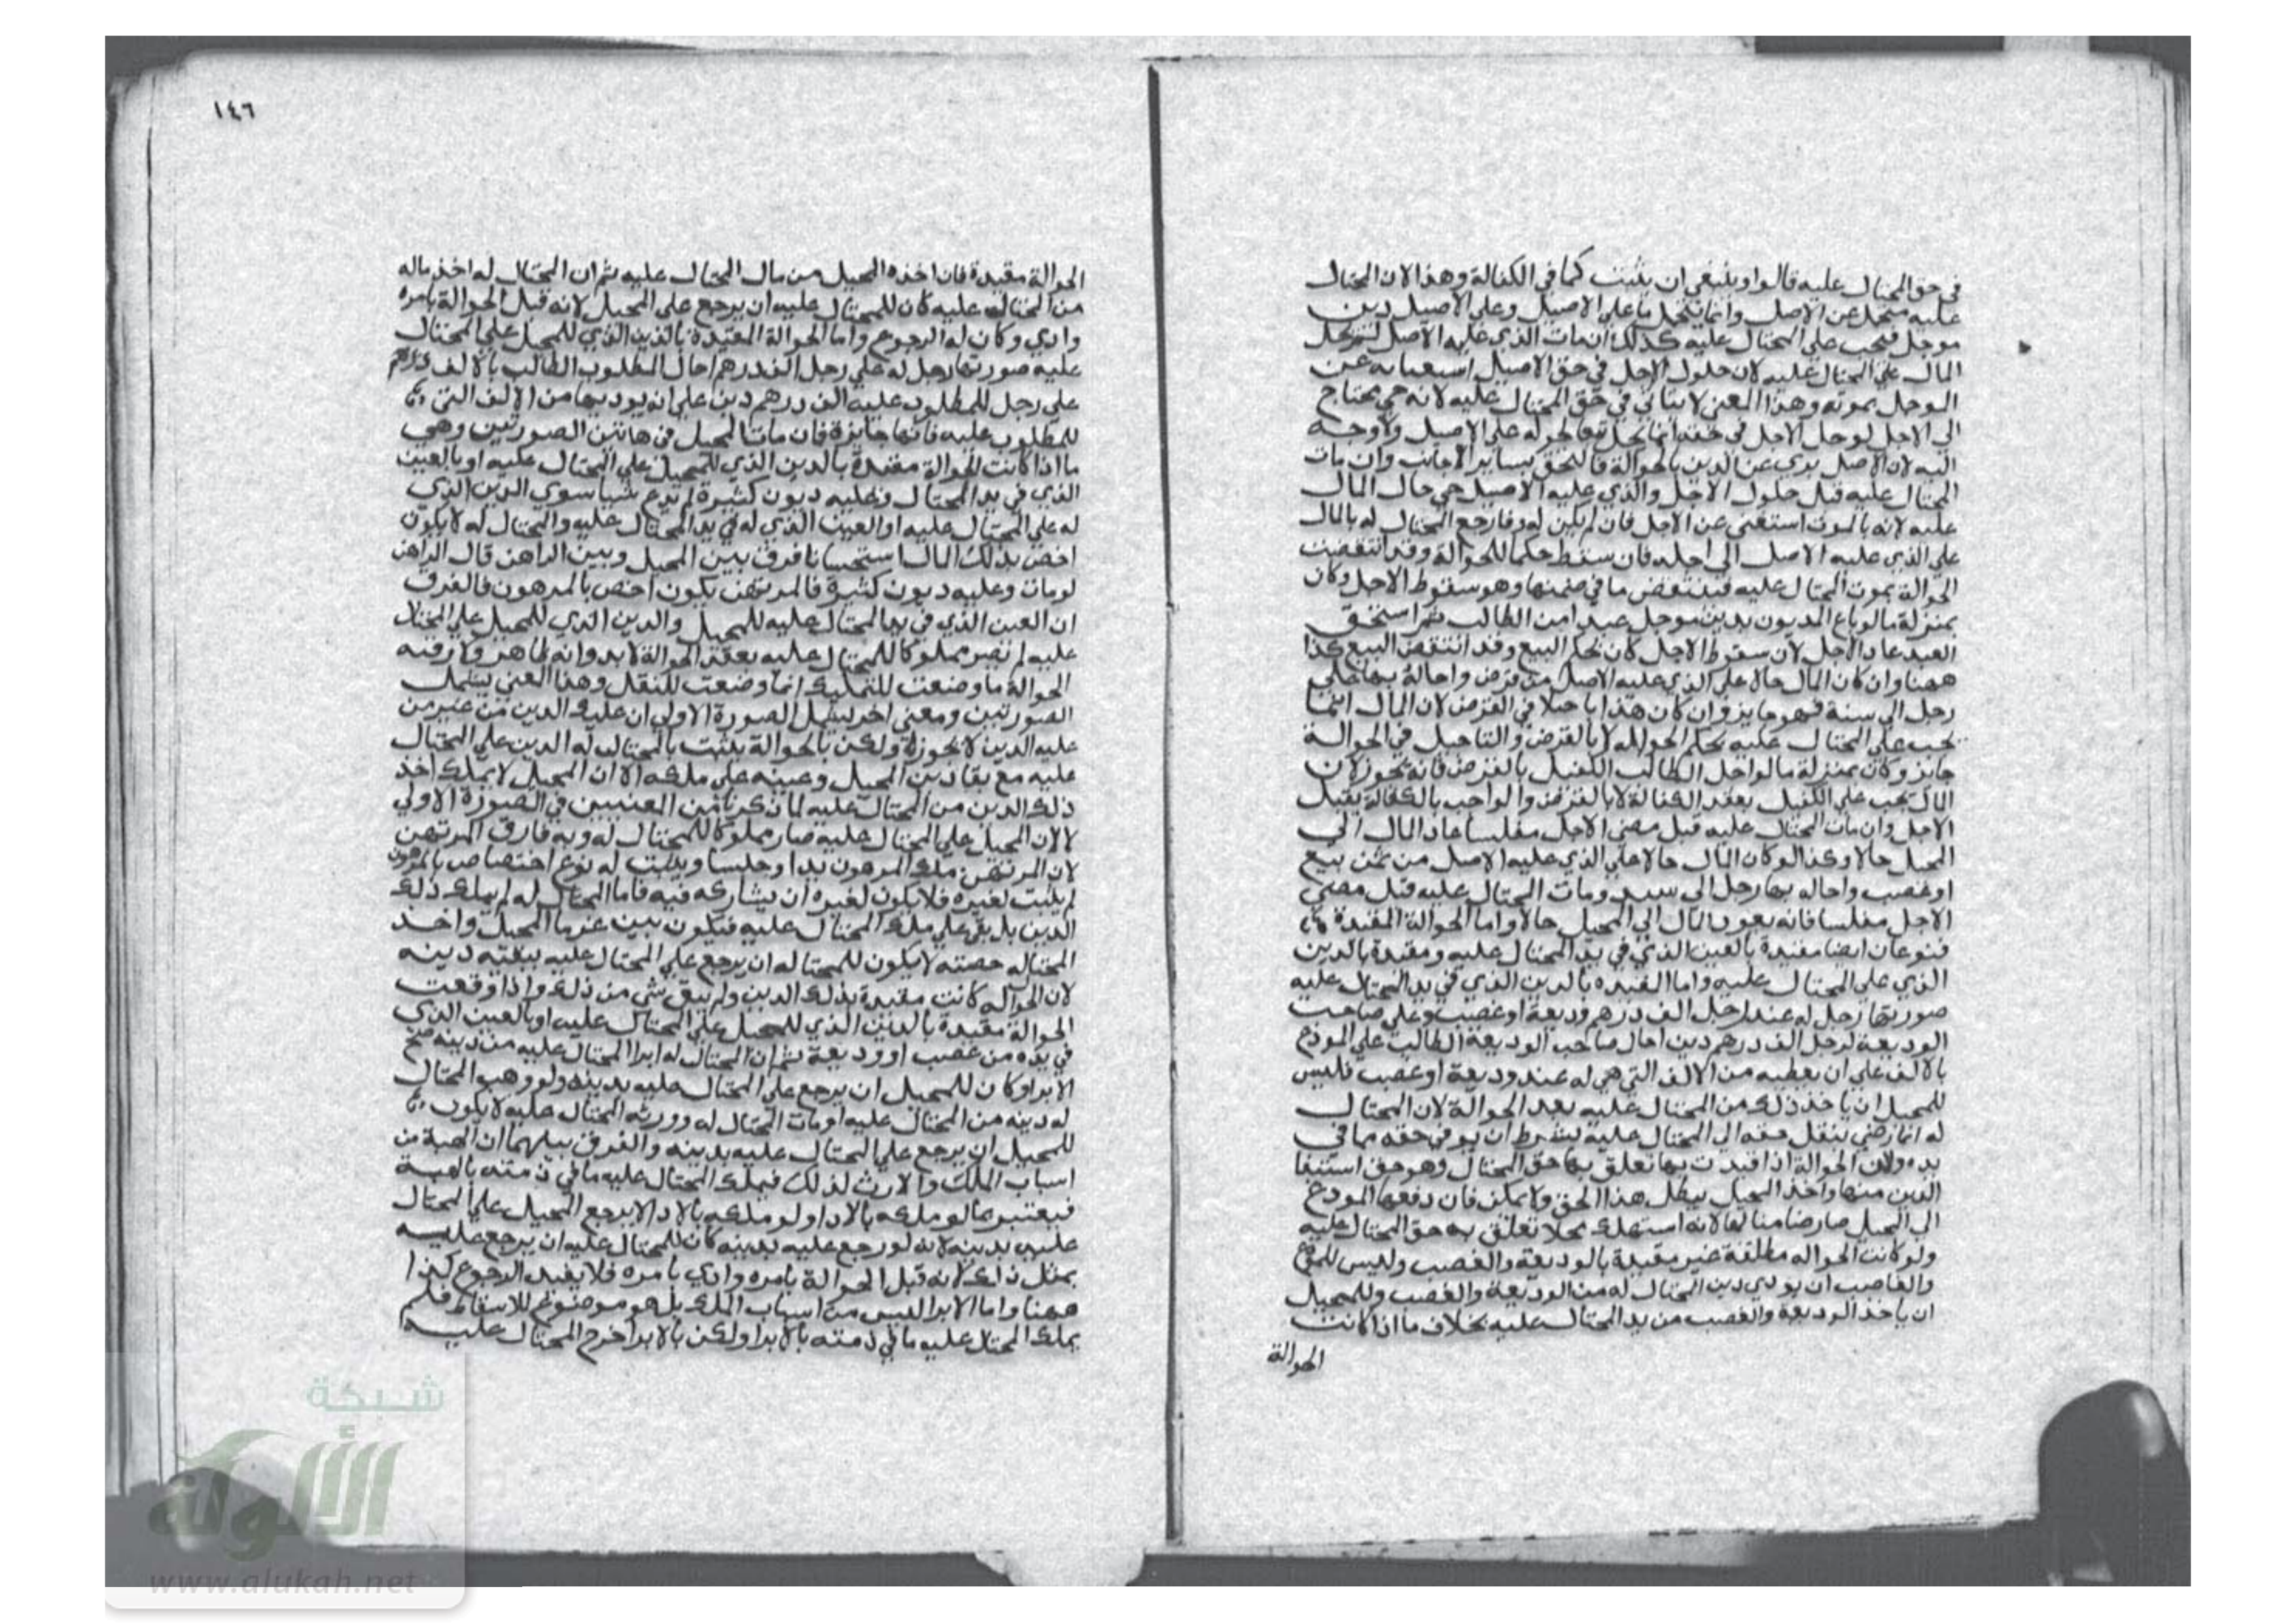 في حق المحتال عليه قالوا وينبغي ان يثبت كما في الكفالة وهذا لان المحتال
عليه متحمل عن الاصل وانما يتحمل ما على الاصيل وعلى الاصيل دين
موجل فيجب على المحتال عليه كذلك ان مات الذي عليه الاصل لم يحل
المال على المحتال عليه لان حلول الاجل في حق الاصيل استغنايه عن
الوجل بموته وهذا المعنى لا يتاتي في حق المحتال عليه لانه حي محتاج
الى الاجل لو حل الاجل في حقه انما يحل تبعا لحوله على الاصيل ولا وجه
اليه لان الاصل بري عن الدين بالحوالة فالتحق بساير الاجانب وان مات
المحتال عليه قبل حلول الاجل والذي عليه الاصيل حي حال المال
عليه لانه بالموت استغنى عن الاجل فان لم يكن له وفا رجع المحتال له بالمال
على الذي عليه الاصل الى اجله فان سقط حكما للحوالة وقد انتقضت
الحوالة بموت المحتال عليه فينتقض ما في ضمنها وهو سقوط الاجل وكان
بمنزلة ما لو باع المديون بدين موجل عبدا من الطالب ثم استحق
العبد عاد الاجل لان سقوط الاجل كان بحكم البيع وقد انتقض البيع كذا
ههنا وان كان المال حالا على الذي عليه الاصل من قرض واحاله بها على
رجل الى سنة فهو جايز وان كان هذا تاجيلا في القرض لان المال انما
يجب على المحتال عليه بحكم الحوالة لا بالقرض والتاجيل في الحوالة
جايز وكان بمنزلة ما لو اجل الطالب الكفيل بالقرض فانه يجوز لان
المال يجب على الكفيل بعقد الكفالة لا بالقرض والواجب بالكفالة يقبل
الاجل وان مات المحتال عليه قبل مضي الاجل مفلسا عاد المال الى
المحيل حالا وكذا لو كان المال حالا على الذي عليه الاصل من ثمن بيع
او غصب واحاله بها رجل الى سنة ومات المحتال عليه قبل مضي
الاجل مفلسا فانه يعود المال الى المحيل حالا واما الحوالة المقيدة
فنوعان ايضا مقيدة بالعين الذي في يد المحتال عليه ومقيدة بالدين
الذي على المحتال عليه واما المقيده بالدين الذي في يد المحتال عليه
صورتها رجل له عند رجل الف درهم وديعة او غصب وعلى صاحب
الوديعة لرجل الف درهم دين احال صاحب الوديعة الطالب على المودع
بالالف على ان يعطيه من الالف التي هي له عند وديعة او غصب فليس
للمحيل ان ياخذ ذلك من المحتال عليه بعد الحوالة لان المحتال
له انما رضي بنقل حقه الى المحتال عليه بشرط ان يوفي حقه مما في
يده ولان الحوالة اذا قيدت بها تعلق بها حق المحتال وهو حق استيفا
الدين منها واخذ المحيل يبطل هذا الحق ولا يمكن فان دفعها المودع
الى المحيل صار ضامنا لها لانه استهلك محلا تعلق به حق المحتال عليه
ولو كانت الحواله مطلقة غير مقيدة بالوديعة والغصب وليس للمودع
والغاصب ان يودي دين المحتال له من الوديعة والغصب وللمحيل
ان ياخذ الوديعة والغصب من يد المحتال عليه بخلاف ما اذا كانت
الحوالة
١٤٦
الحوالة مقيدة فان اخذه المحيل من مال المحتال عليه ثم ان المحتال له اخذ ماله
من المحتال عليه كان للمحتال عليه ان يرجع على المحيل لانه قبل الحوالة بامره
وادي وكان له الرجوع واما الحوالة المقيدة بالدين الذي للمحيل على المحتال
عليه صورتها رجل له على رجل الف درهم احال المطلوب الطالب بالالف درهم
على رجل للمطلوب عليه الف درهم دين على ان يوديها من الالف التي
للمطلوب عليه فانها جايزة فان مات المحيل في هاتين الصورتين وهي
ما اذا كانت الحوالة مقيدة بالدين الذي للمحيل على المحتال عليه او بالعين
الذي في يد المحتال وعليه ديون كثيرة لم يدع شيا سوي الدين الذي
له على المحتال عليه او العين الذي له في يد المحتال عليه والمحتال له لا يكون
اخص بذلك المال استحسانا فرق بين المحيل وبين الراهن قال الراهن
لو مات وعليه ديون كثيرة فالمرتهن يكون اخص بالمرهون فالفرق
ان العين الذي في يد المحتال عليه للمحيل والدين الذي للمحيل على المحتال
عليه لم تصر مملوكا للمحتال عليه بعقد الحوالة لا يدا وانه ظاهر ولا رقبه
الحوالة ما وضعت للتمليك انما وضعت للنقل وهذا المعنى يشمل
الصورتين ومعنى اخر يشمل الصورة الاولى ان تمليك الدين من غير من
عليه الدين لا يجوز ولكن بالحوالة يثبت بالمحتال له الدين على المحتال
عليه مع بقا دين المحيل وعينه على ملكه الا ان المحيل لا يملك اخذ
ذلك الدين من المحتال عليه لما ذكرنا من المعنيين في الصورة الاولى
لا لان المحيل على المحتال عليه صار مملوكا للمحتال له وبه فارق المرتهن
لان المرتهن ملك المرهون يدا وحبسا ويثبت له نوع اختصاص بالمرهون
لم يثبت لغيره فلا يكون لغيره ان يشاركه فيه فاما المحتال له لم يملك ذلك
الدين بل بقى على ملك المحتال عليه فيكون بين غرما المحيل واخذ
المحتاله حصته لا يكون للمحتال له ان يرجع على المحتال عليه ببقية دينه
لان الحواله كانت مقيدة بذلك الدين ولم يبق شي من ذلك واذا وقعت
الحوالة مقيدة بالدين الذي للمحيل على المحتال عليه او بالعين الذي
في يده من غصب او وديعة ثم ان المحتال له ابرا المحتال عليه من دينه صح
الابرا وكان للمحيل ان يرجع على المحتال عليه بدينه ولو وهب المحتال
له دينه من المحتال عليه او مات المحتال له وورثه المحتال عليه لا يكون
للمحيل ان يرجع على المحتال عليه بدينه والفرق بينهما ان الهبة من
اسباب الملك والارث لذلك فيملك المحتال عليه ما في ذمته بالهبة
فيعتبر بما لو ملكه بالادا ولو ملكه بالادا لا يرجع المحيل على المحتال
عليه بدينه لانه لو رجع عليه بدينه كان للمحتال عليه ان يرجع عليه
بمثل ذلك لانه قبل الحوالة بامره وادي بامره فلا يفيد الرجوع كذا
ههنا واما الابرا ليس من اسباب الملك بل هو موضوع للاسقاط فلم
يملك المحتال عليه ما في ذمته بالابرا ولكن بالابرا خرج المحتال عليه
شبكة
الألوكة
www.alukah.net